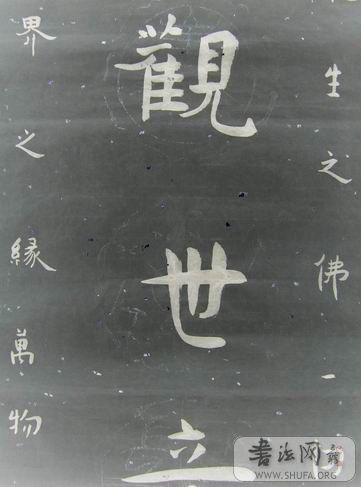 生之佛一
觀世立
界之緣萬物
書法网
WWW.SHUFA.ORG